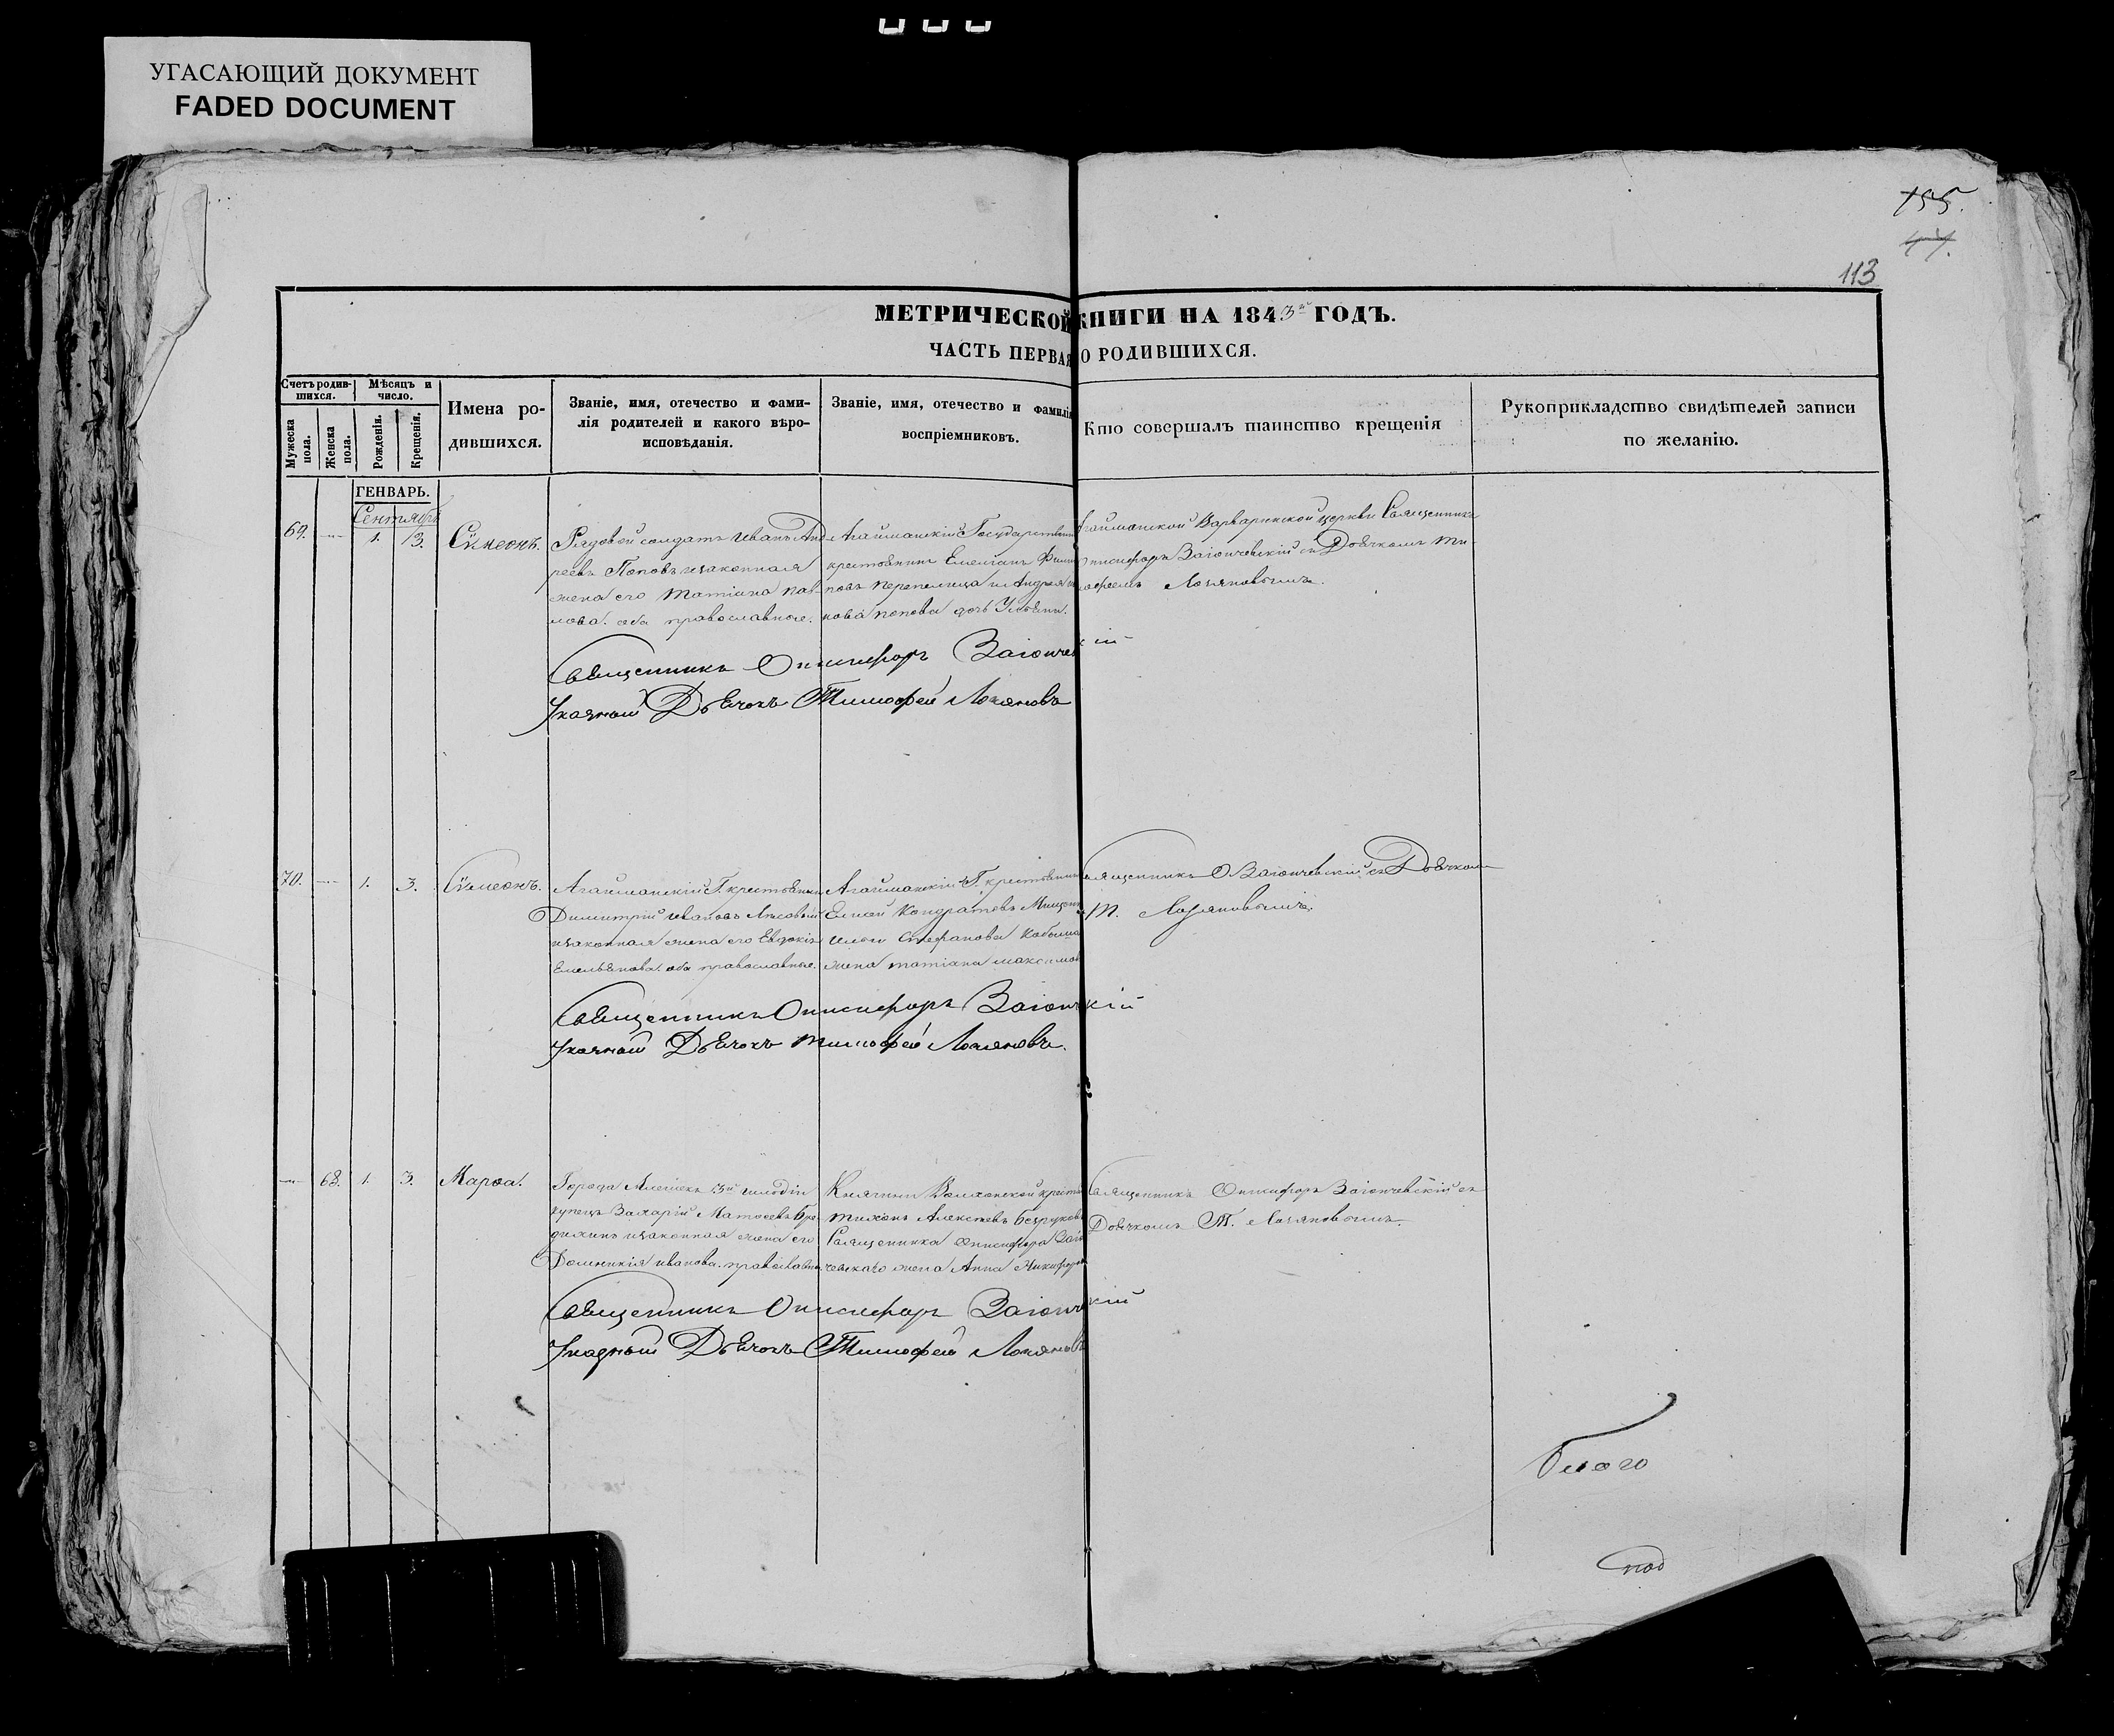 УГАСАЮЩИЙ ДОКУМЕНТ
FADED DOCUMENT
155.
113
МЕТРИЧЕСКОЙ КНИГИ НА 1843й ГОДЪ.
ЧАСТЬ ПЕРВАЯ О РОДИВШИХСЯ.
Счетъ родив-
шихся.
Мужеска
пола.
Женска
пола.
Мѣсяцъ и
число.
Рожденія.
Крещенія.
Имена ро-
дившихся.
Званіе, имя, отечество и фами-
лія родителей и какого вѣро-
исповѣданія.
Званіе, имя, отечество и фамилія
воспріемниковъ.
Кто совершалъ таинство крещенія
Рукоприкладство свидѣтелей записи
по желанію.
ГЕНВАРЬ.
Сентябрь
69. 1. 3. Сѵмеонъ.
Рядовой солдатъ Иванъ Анд
реевъ Поповъ и законная
жена его Татіана Пав-
лова. оба православные.
Агайманскій Государственный
крестьянинъ Емеліанъ Фили
повъ Перепелица и Андрея
нова Попова дочь Ульяна.
Агайманской Варваринской церкви Священникъ
Онисифоръ Заіончевскій съ Дьячкомъ Ти-
мофеемъ Лозяновымъ.
Священникъ Онисифоръ Заіончевскій
Указный Дьячокъ Тимофей Лозяновъ
70. 1. 3. Сѵмеонъ.
Агайманскій Г. крестьянинъ
Димитрій Ивановъ Лисовый
и законная жена его Евдокія
Емельянова. оба православные.
Агайманскій Г. крестьянинъ
Елисей Кондратевъ
Стефанова
жена Татіана Максимова
Священникъ О Заіончевскій съ Дьячкомъ
Т. Лозяновымъ.
Священникъ Онисифоръ Заіончкій
Указный Дьячокъ Тимофей Лозяновъ.
68. 1. 3. Марѳа.
Города Алешекъ 3й гильдіи
купецъ Захарій Матвеевъ
и законная жена его
Иванова. православные
крест
Тихонъ Алексеевъ Безруковъ
Священника Онисифора Заіон
чевскаго жена Анна Никифорова
Священникъ Онисифоръ Заіончевскій съ
Дьячкомъ Т. Лозяновымъ.
Священникъ Онисифоръ Заіончкій
Указный Дьячокъ Тимофей Лозяновъ